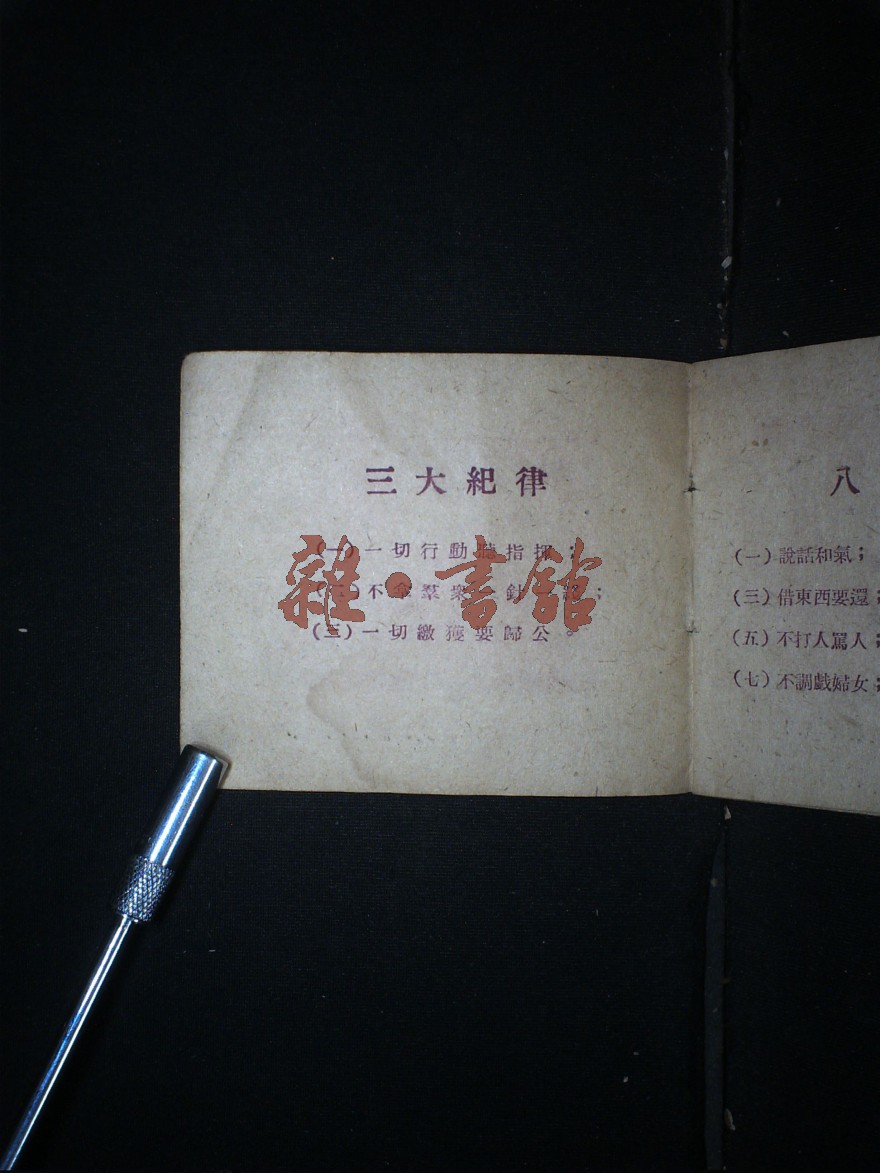 三大紀律
(一)一切行動聽指揮；
(二)不拿羣衆一針一綫；
(三)一切繳獲要歸公。
雜·書館
八
(一)說話和氣；
(三)借東西要還；
(五)不打人駡人；
(七)不調戲婦女；